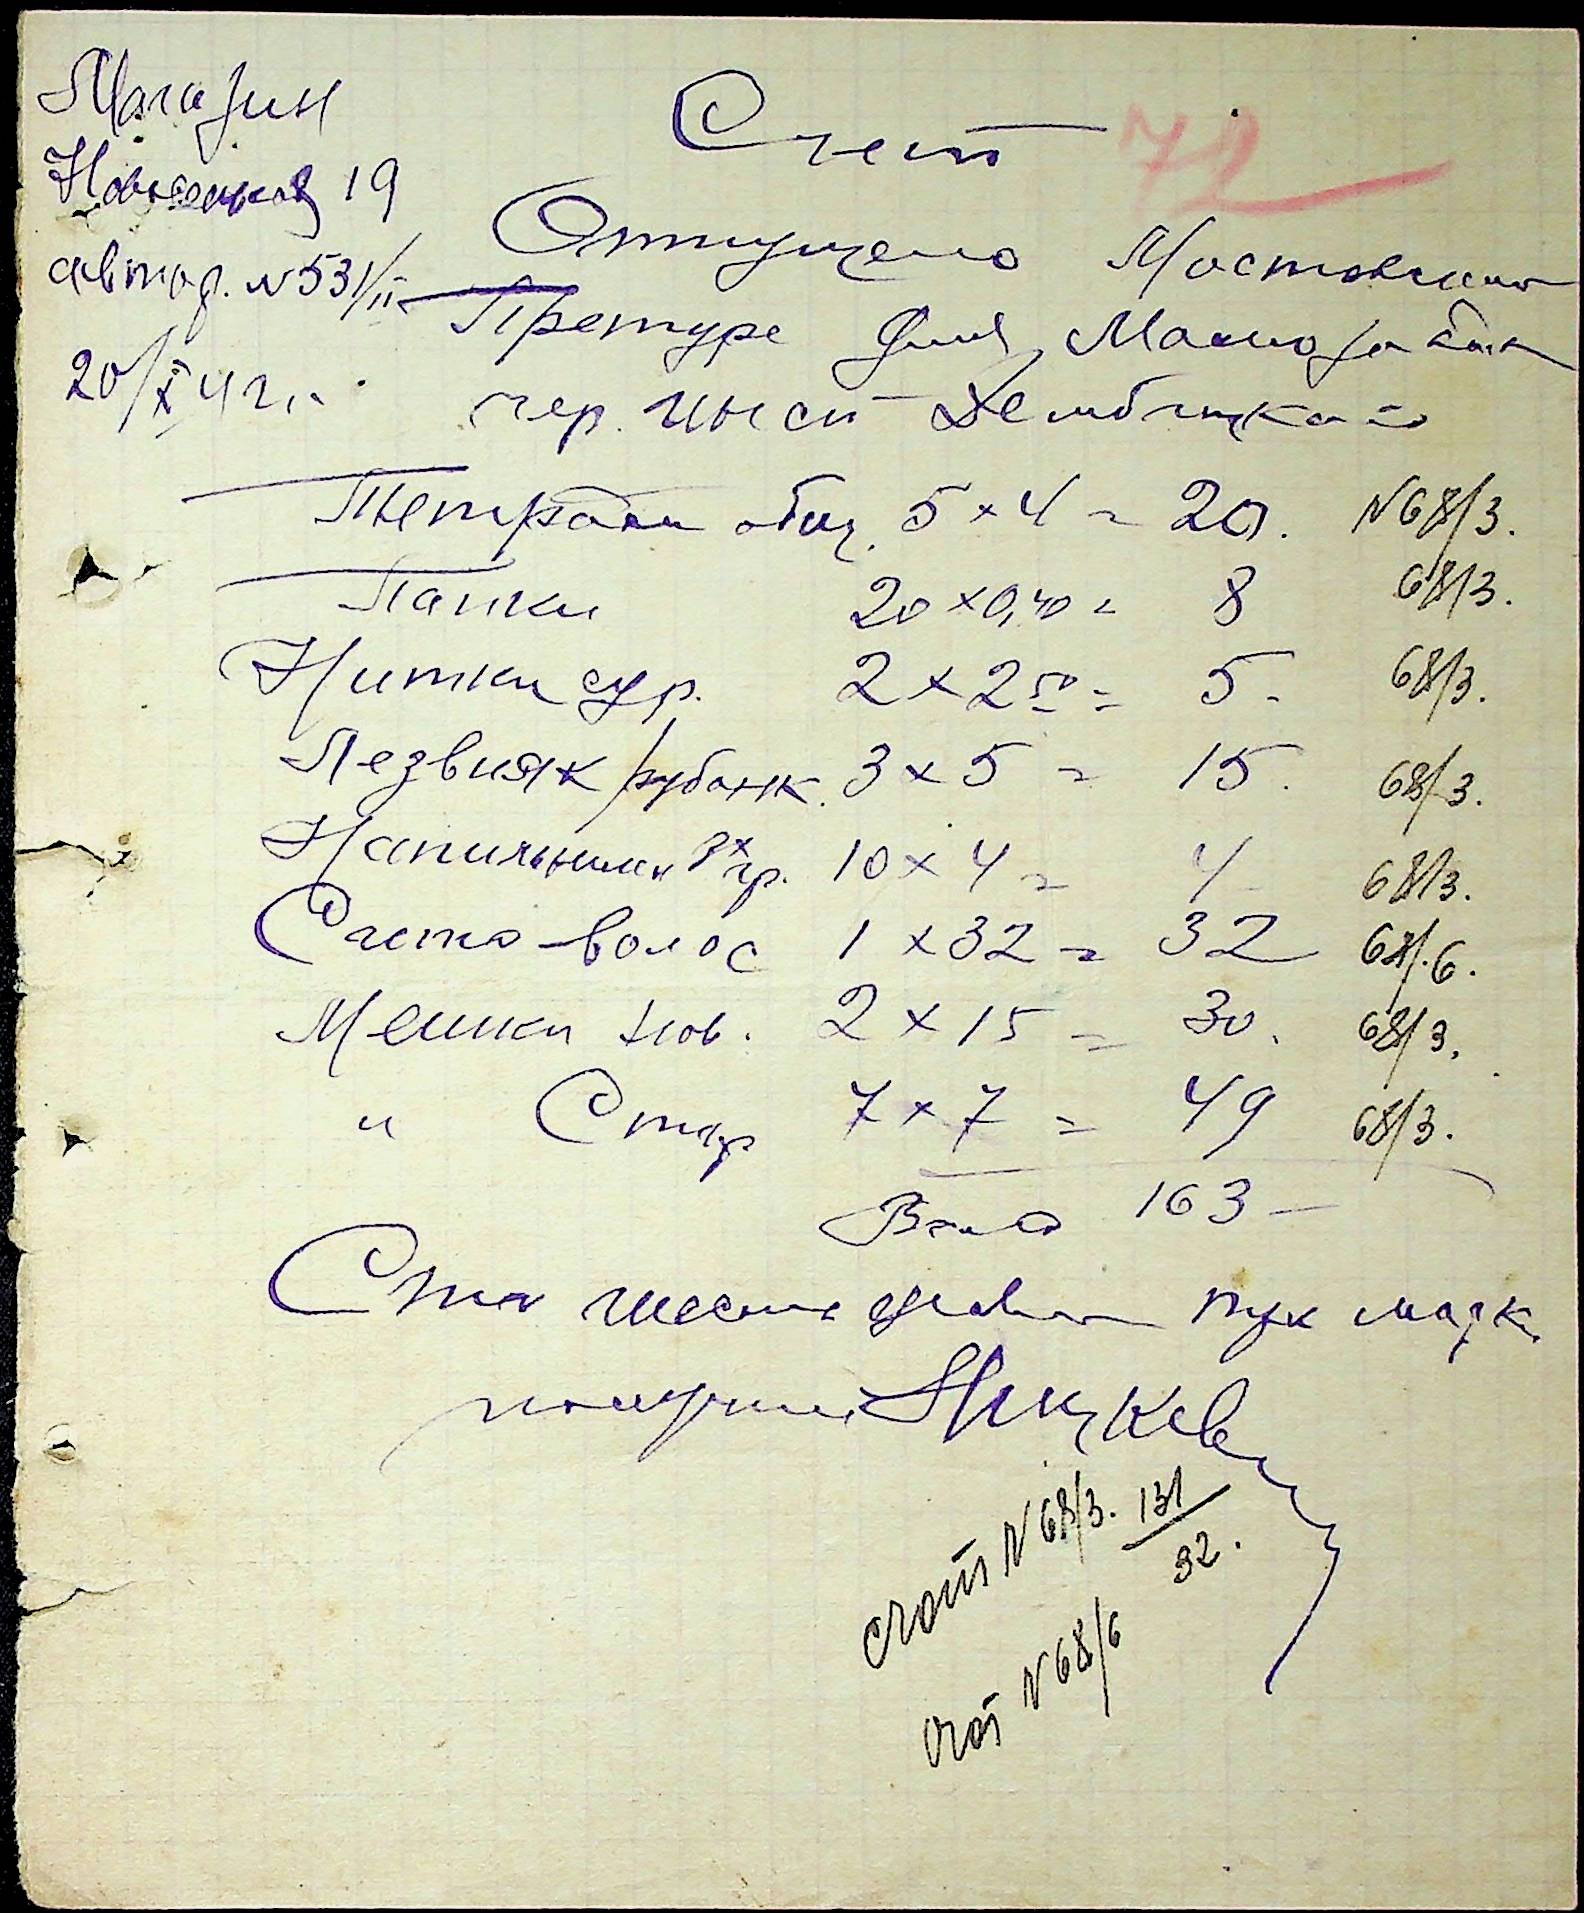 Магазин
19
автор. N 531/II
20/X 41 г.
Счет 72
Отпущено Мостовской
Претуре для Маслозавода
чер.
Тетради общ. 5 × 4 = 20. N68/3.
Папки 20 × 0,40 = 8 68/3.
Нитки сур. 2 × 2 50 = 5 - 68/3.
Лезвия к рубанк. 3 × 5 = 15. 68/3.
Напильники 3х гр. 10 × 4 = 4 - 68/3.
Сито волос 1 × 32 = 32 68/6.
Мешки нов. 2 × 15 = 30. 68/3.
" Стар 7 × 7 = 49 68/3.
Всего 163 -
Сто шесть десят три марк.
получил
счот N 68/3. 131
32.
счот N 68/6